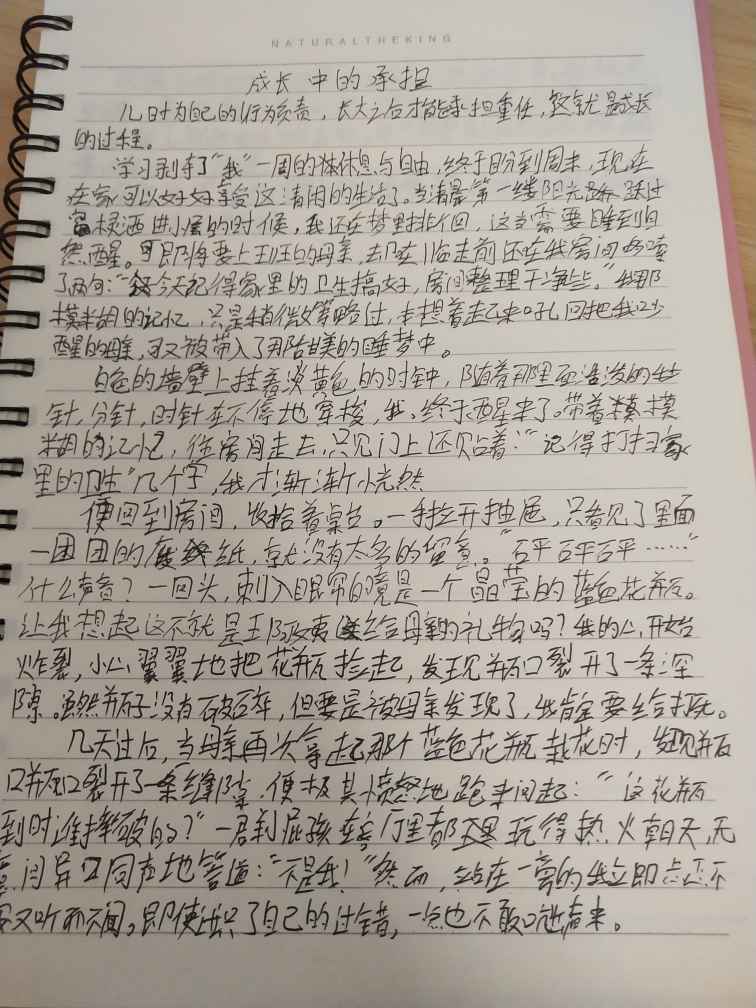 NATURALTHEKING
成长中的承担
儿时为自己的行为负责，长大之后才能承担重任，这就是成长
的过程。
学习剥夺了“我”一周的体休息与自由，终于盼到周末，现在
在家可以好好享受这清闲的生活了。当清晨第一缕阳光跃过
窗棂洒进小屋的时候，我还在梦里徘徊，这当需要睡到自
然醒。可即将要上班的母亲，却在临走前还在我房间
了两句：“今天记得家里的卫生搞好，房间整理干净些。”我那
模糊的记忆，只是稍微略过，本想着起来回把我吵
醒的母亲，可又被带入了那甜美的睡梦中。
白色的墙壁上挂着淡黄色的时钟，随着那里面的秒
针，分针，时针在不停地穿梭，我终于醒来了。带着模
糊的记忆，往房间走去，只见门上还贴着：“记得打扫家
里的卫生”几个字，我才渐渐恍然
便回到房间，收拾着桌台。一手拉开抽屉，只看见了里面
一团团的废纸，就没有太多的留意。“砰砰砰……”
什么声音？一回头，刺入眼帘的竟是一个晶莹的蓝色花瓶。
让我想起这不就是王阿姨送给母亲的礼物吗？我的心开始
炸裂，小心翼翼地把花瓶捡起，发现瓶口裂开了一条深
隙。虽然瓶子没有破碎，但要是被母亲发现了，我肯定要给打死。
几天过后，当母亲再次拿起那个蓝色花瓶栽花时，发现瓶
口瓶口裂开了一条缝隙，便极其愤怒地跑来问起：“这花瓶
到时谁摔破的？”一群屁孩在客厅里都还里玩得热火朝天，无
意间异口同声地答道：“不是我！”然而，站在一旁的我立即
又听而不闻。即使意识了自己的过错，一点也不敢吭声来。